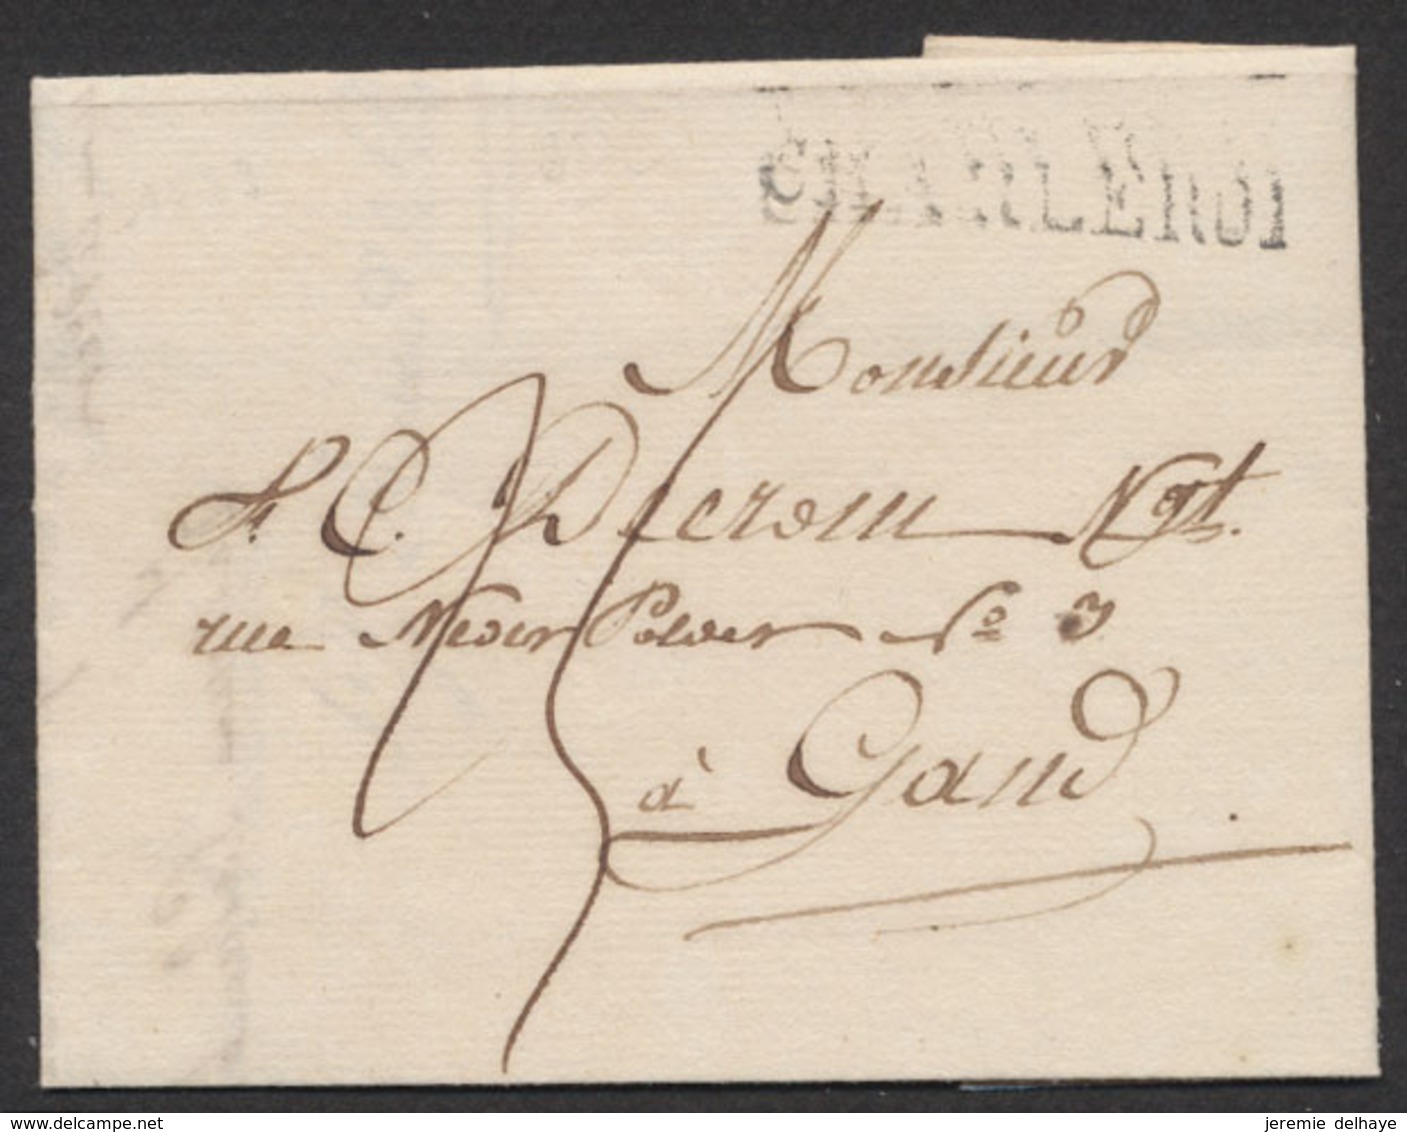 CHARLEROI
Monsieur
C. Decrom Ngt.
rue Neder Polder No 3
à Gand
delcampe.net
jeremie delhaye